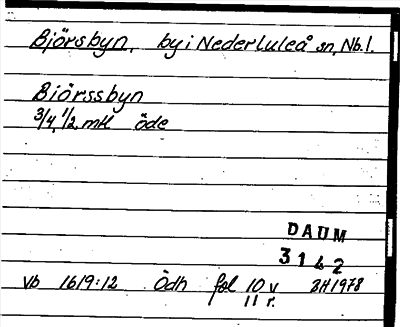 Björsbyn, by i Nederluleå sn, Nb.l.
Biörssbyn
3/4, 1/2 mtl öde
DAUM
3142
Vb 1619:12 Ödh fol 10 v
11 r. 1978